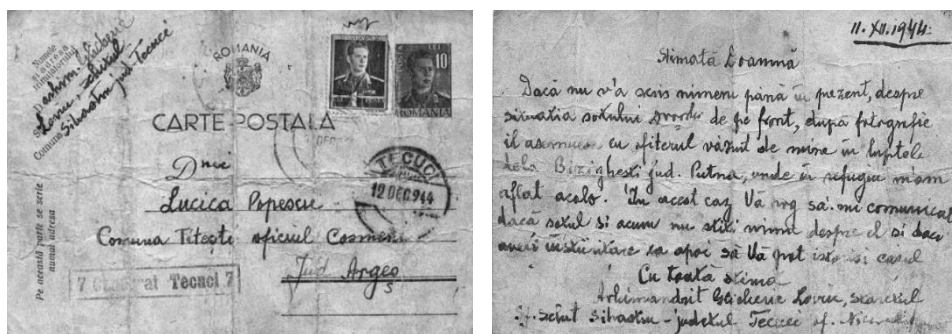 Numele
și adresa
trimițătorului
Comuna Sihastru jud Tecuci
ROMANIA
10
LEI
ROMANIA
CARTE POSTALA
TECUCI
12 DEC 944
Dnei
Lucica Popescu
Comuna Titești oficiul Cozmeni
Jud Argeș
7 Cenzurat Tecuci 7
Pe această parte se scrie
numai adresa
11.XII.1944
Stimată Doamnă
Dacă nu v'a scris nimeni până în prezent, despre
situatia sotului Dvoastră de pe front, după fotografie
il asemuesc cu ofiterul văzut de mine în luptele
dela Bizighești jud. Putna, unde în refugiu m'am
aflat acolo. In acest caz Vă rog să-mi comunicați
dacă sotul si acum nu stiti nimic despre el si daca
aveti instiintare ca apoi să Vă pot istorisi cazul
Cu toată stima
Arhimandrit Gicherie Lovin, staretul
schit Sihastru - judetul Tecuci